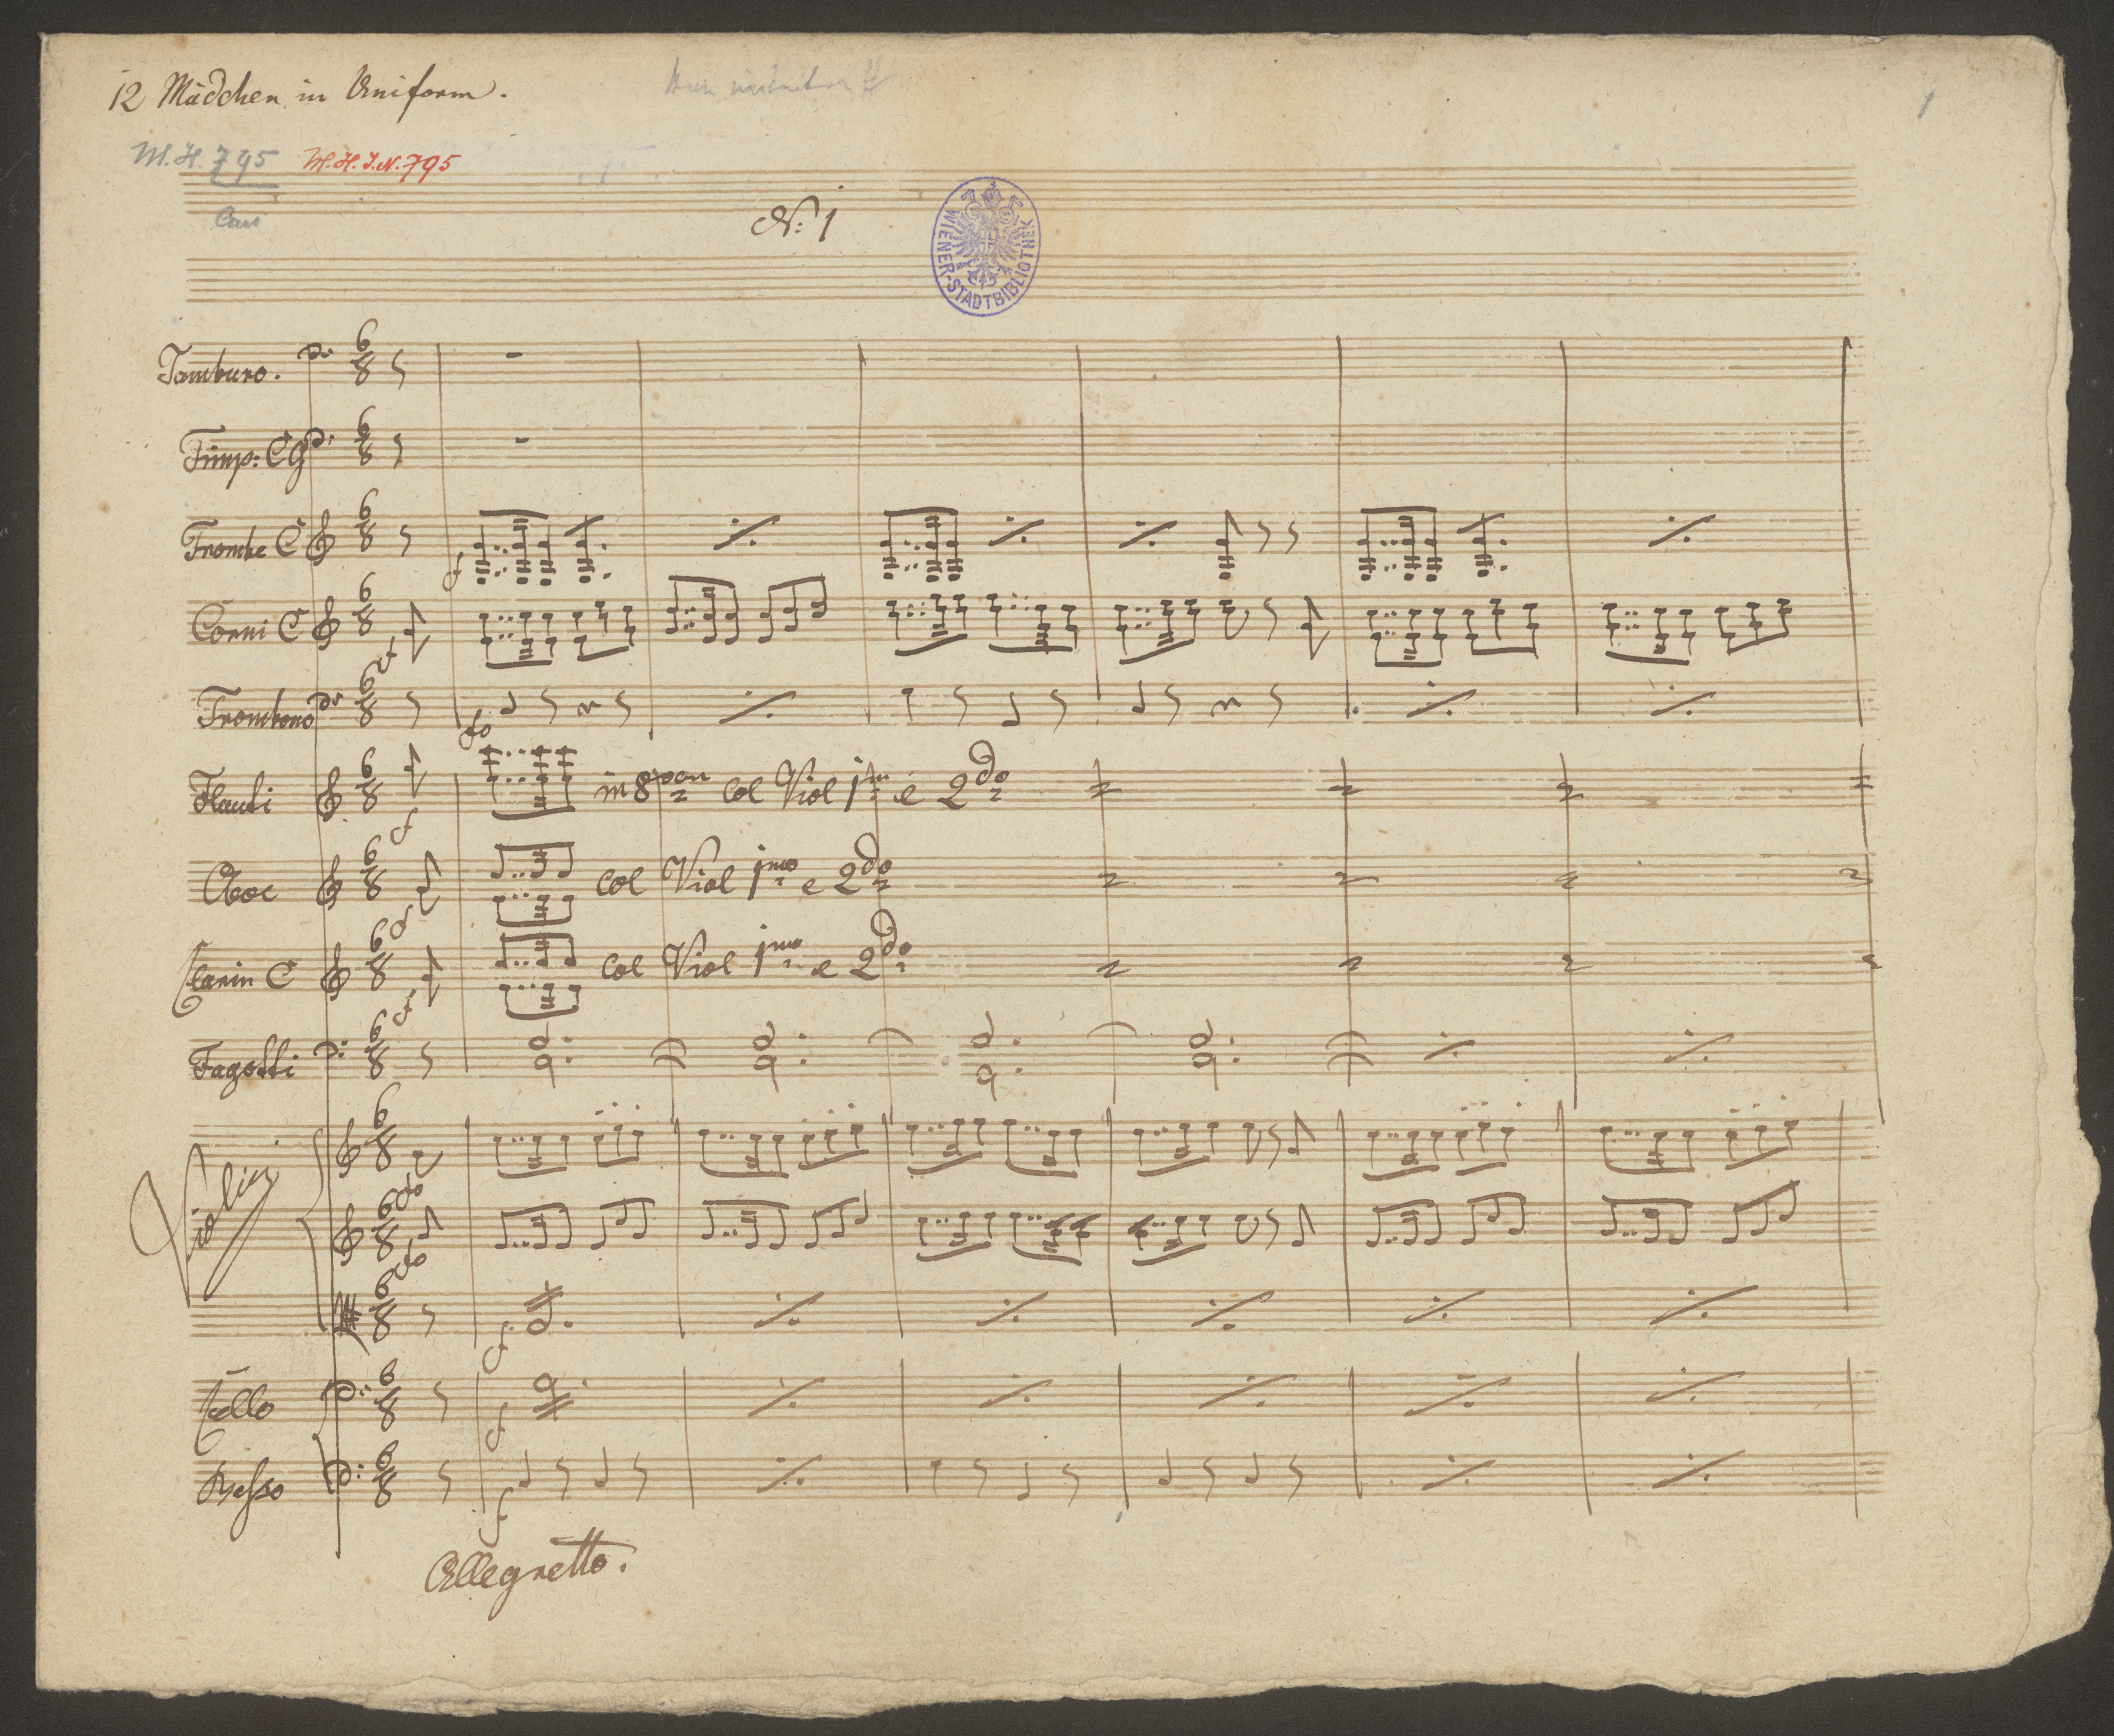 12 Mädchen in Uniform.
1
M. H. 795
M. H. I. N. 795
No: 1
WIENER-STADTBIBLIOTHEK
Tamburo.
6 8
Timp: C G
6 8
Trombe C
6 8
f
Corni C
6 8
f
Trombono
6 8
fo
Flauti
6 8
in 8van col Viol 1mo e 2do
f
Oboe
6 8
col Viol 1mo e 2do
f
Clarin C
6 8
col Viol 1mo e 2do
f
Fagotti
6 8
Violini
6 8
fo
6 8
fo
6 8
f
Cello
6 8
f
Basso
6 8
f
Allegretto.